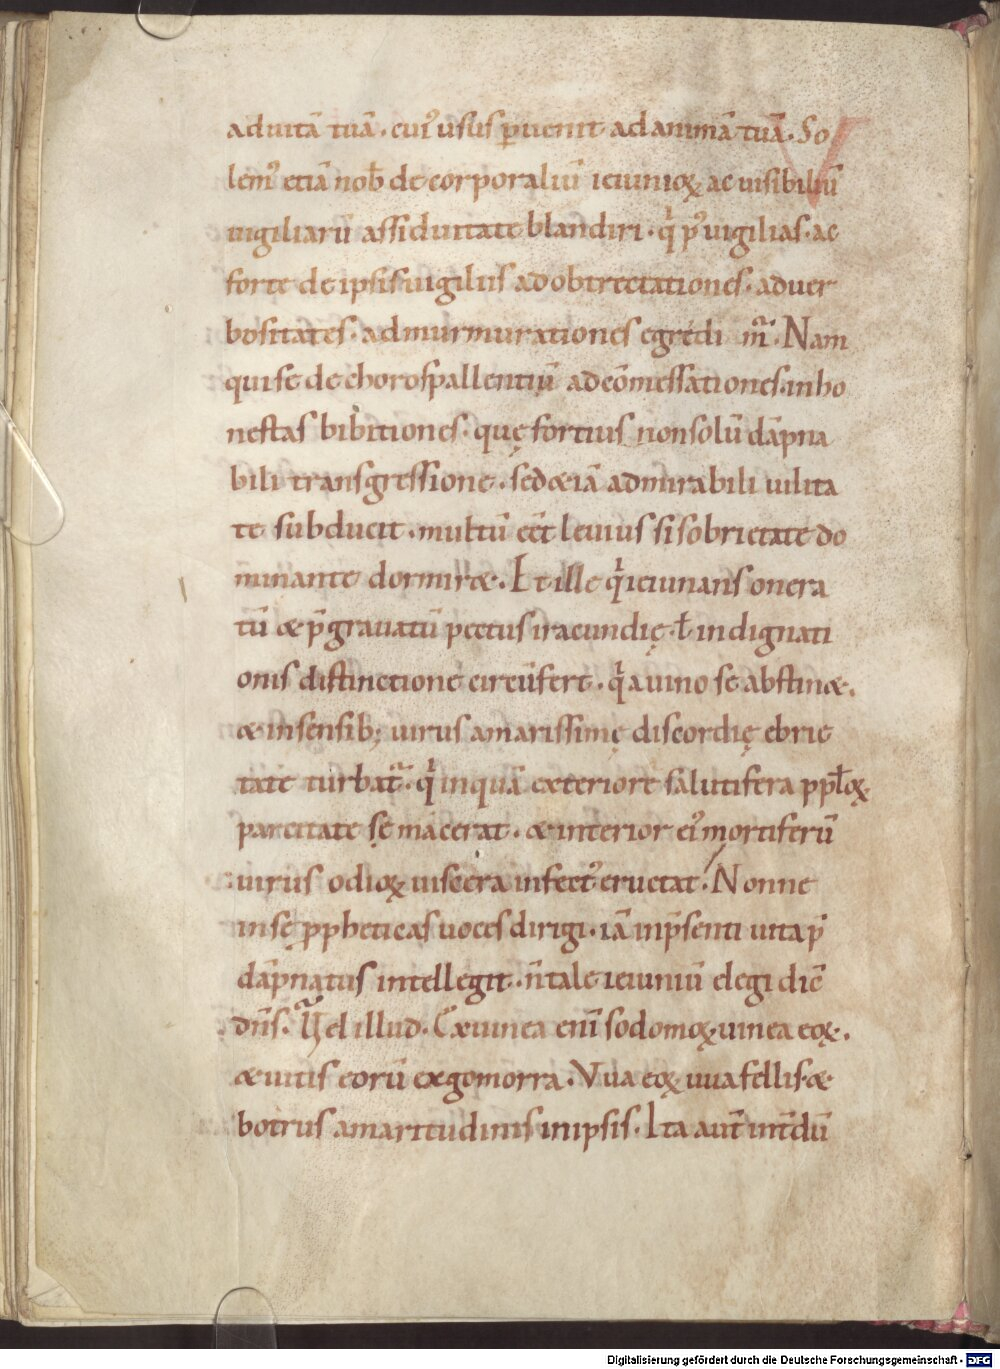 aduitā tuā. cui᾽ usus ꝑuenit adanimā tuā. So
lem᾽ etiā nob̄ de corporaliū ieiunioꝝ ac uisibiliū
uigiliarū assiduitate blandiri. q̇ p᾽ uigilias. ac
forte de ipsis uigiliis adobtrectationes. aduer
bositates. admurmurationes egredi m̄. Nam
qui se de choro psallentiū adcōmessationes. inho
nestas bibitiones. quę fortius nonsolū dāpna
bili transgressione. sed &iā admirabili uilita
te subducit. multū eēt leuius si sobrietate do
minante dormir&. Et ille q̇ ieiunans onera
tū & p̄grauatū pectus iracundię. ł indignati
onis distinctione circūfert. q̇ auino se abstin&.
& insensib; uirus amarissimę discordię ebrie
tate turbat᷒. q̇ inquā exteriore salutifera ppl̄oꝝ
parcitate sę macerat. & interior ei᾽ mortiferū
uirus odioꝝ uiscera infect᾽ eructat. Nonne
insę ꝓpheticas uoces dirigi. iā inp̄senti uita p̄
dāpnatus intellegit. n̄ tale ieiuniū elegi dic̄
dn̄s. Vel illud. Exuinea eni᷒ sodomoꝝ. uinea eoꝝ.
& uitis eorū exgomorra. Vua eoꝝ uua fellis. &
botrus amaritudinis inipsis. Ita aut̄ int̄dū
Digitalisierung gefördert durch die Deutsche Forschungsgemeinschaft - DFG